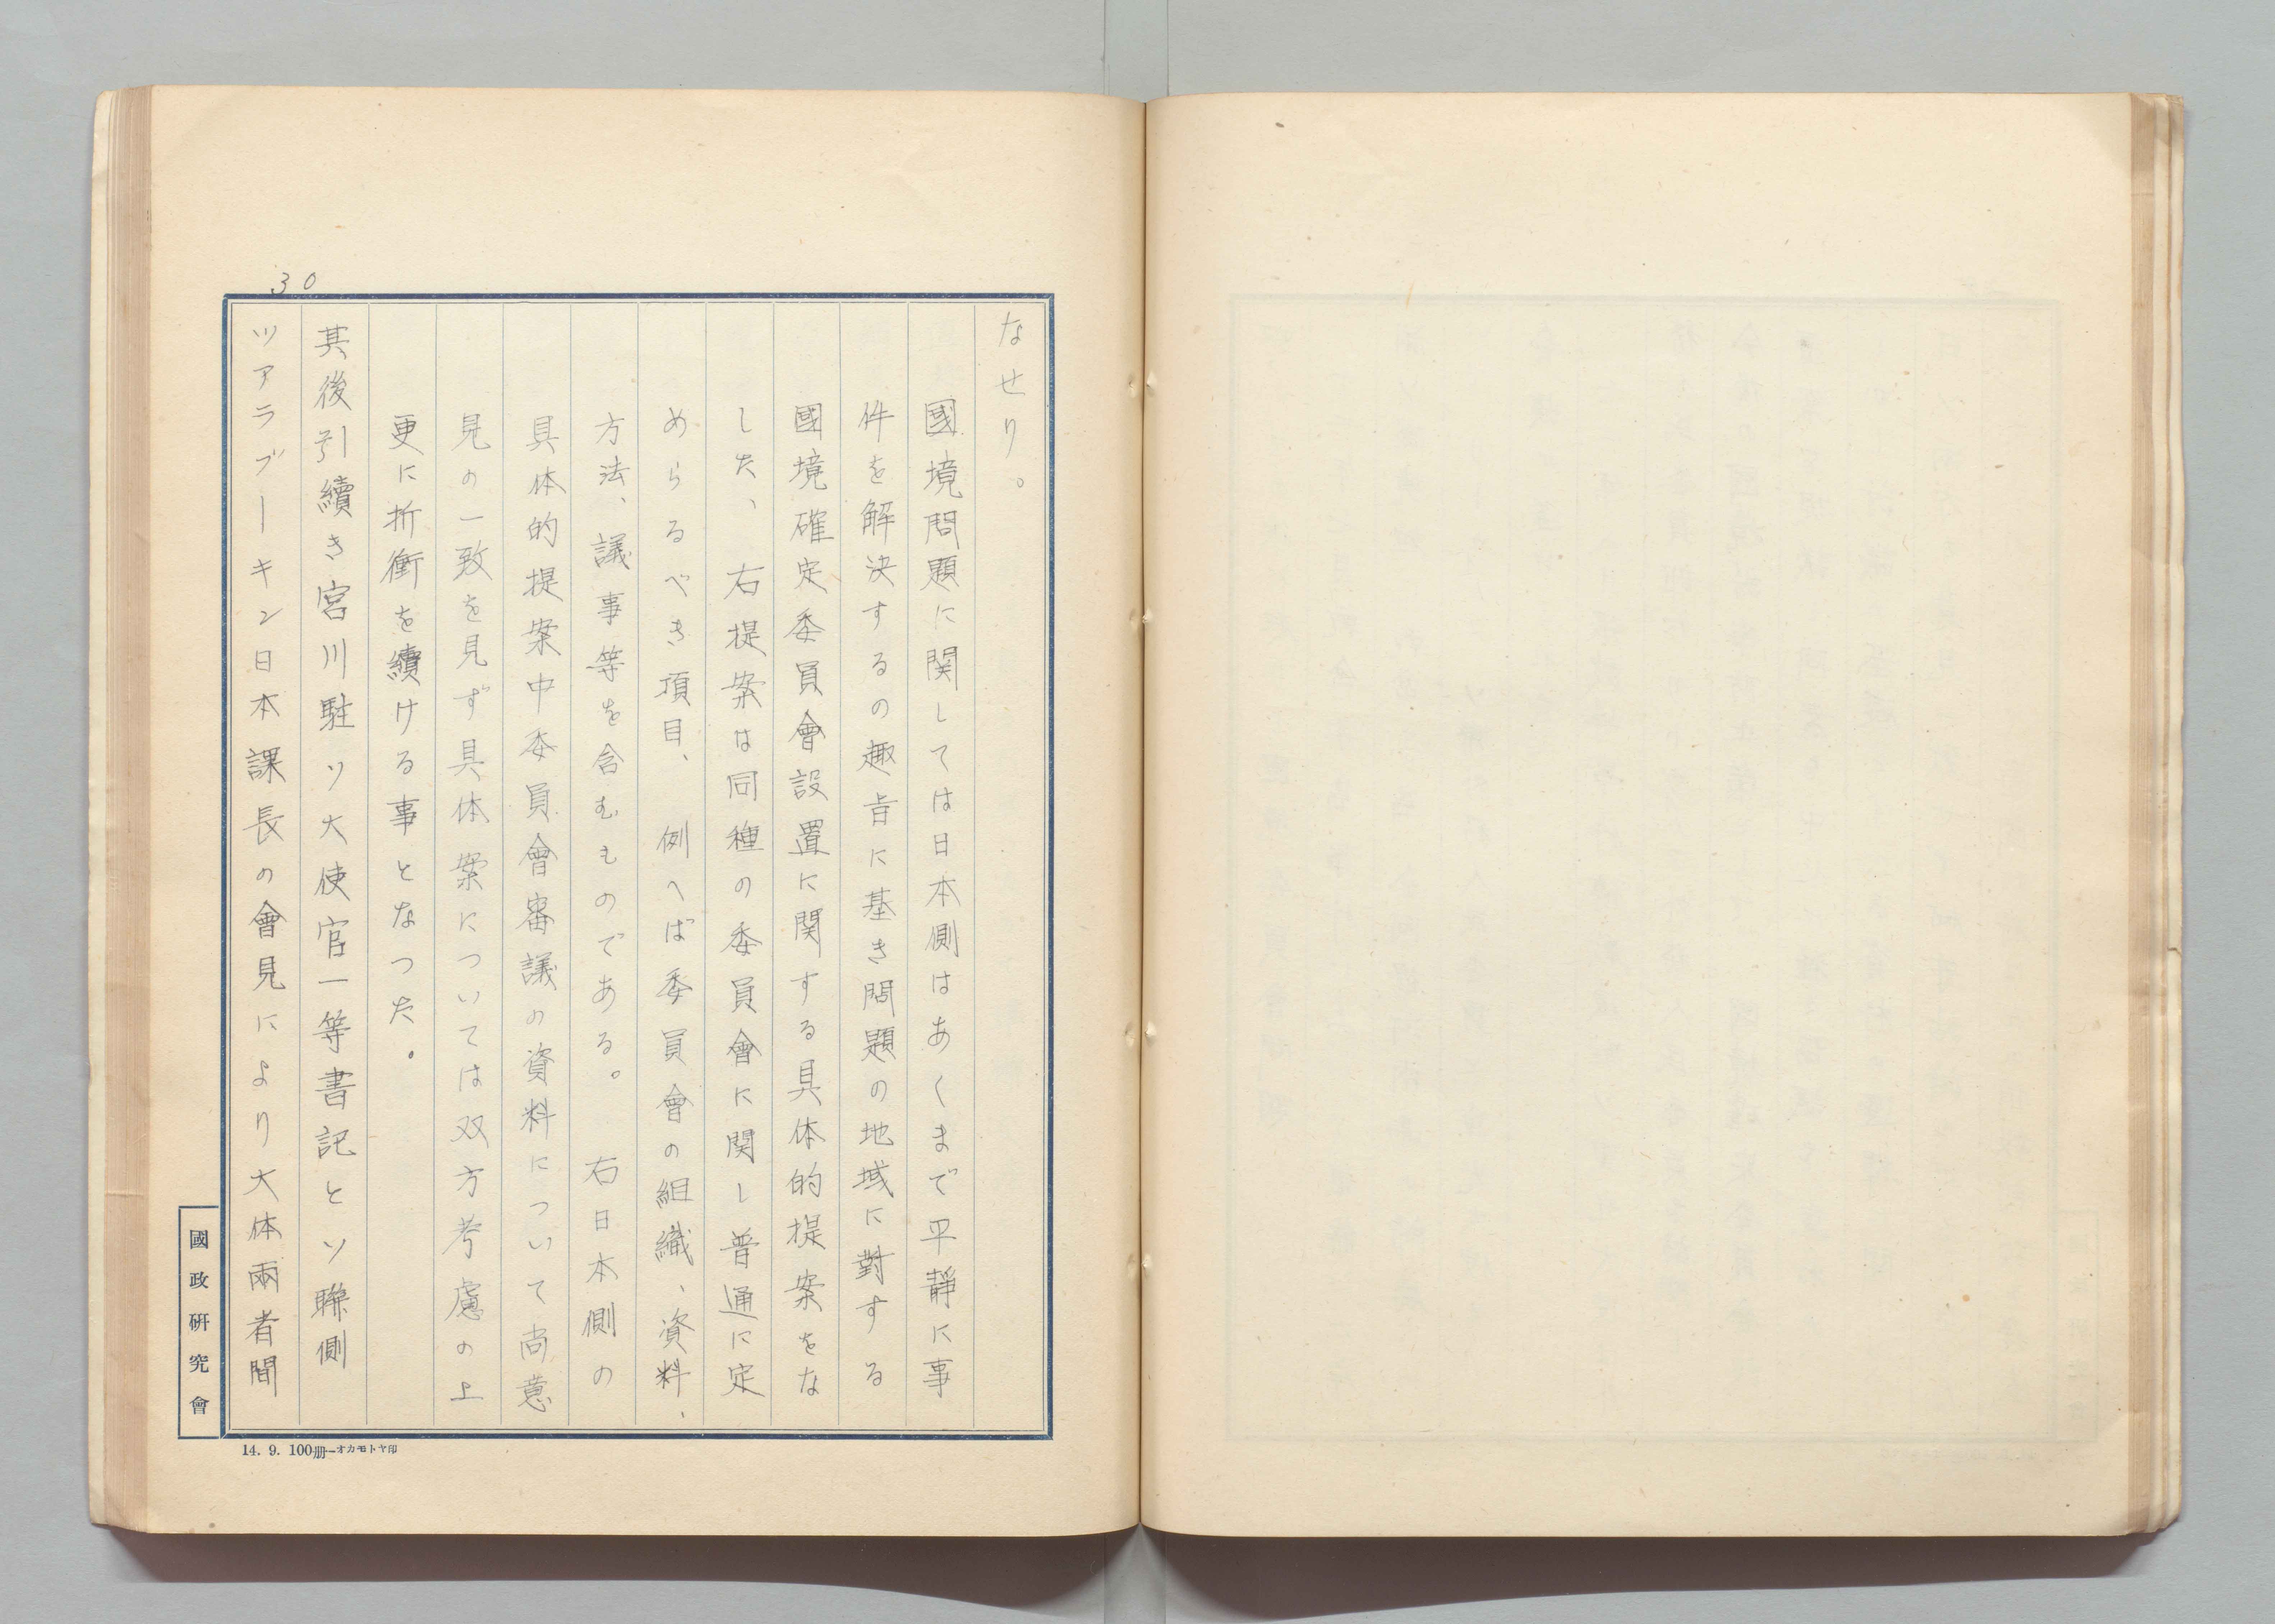 30
なせり。
國境問題に関しては日本側はあくまで平靜に事
件を解決するの趣旨に基き問題の地域に對する
國境確定委員會設置に関する具体的提案をな
した、右提案は同種の委員會に関し普通に定
めらるべき項目、例へば委員會の組織、資料、
方法、議事等を含むものである。右日本側の
具体的提案中委員會審議の資料について尚意
見の一致を見ず具体案については双方考慮の上
更に折衝を續ける事となつた。
其後引續き宮川駐ソ大使官一等書記とソ聯側
ツアラブーキン日本課長の會見により大体兩者間
國政研究會
14. 9. 100册—オカモトヤ印